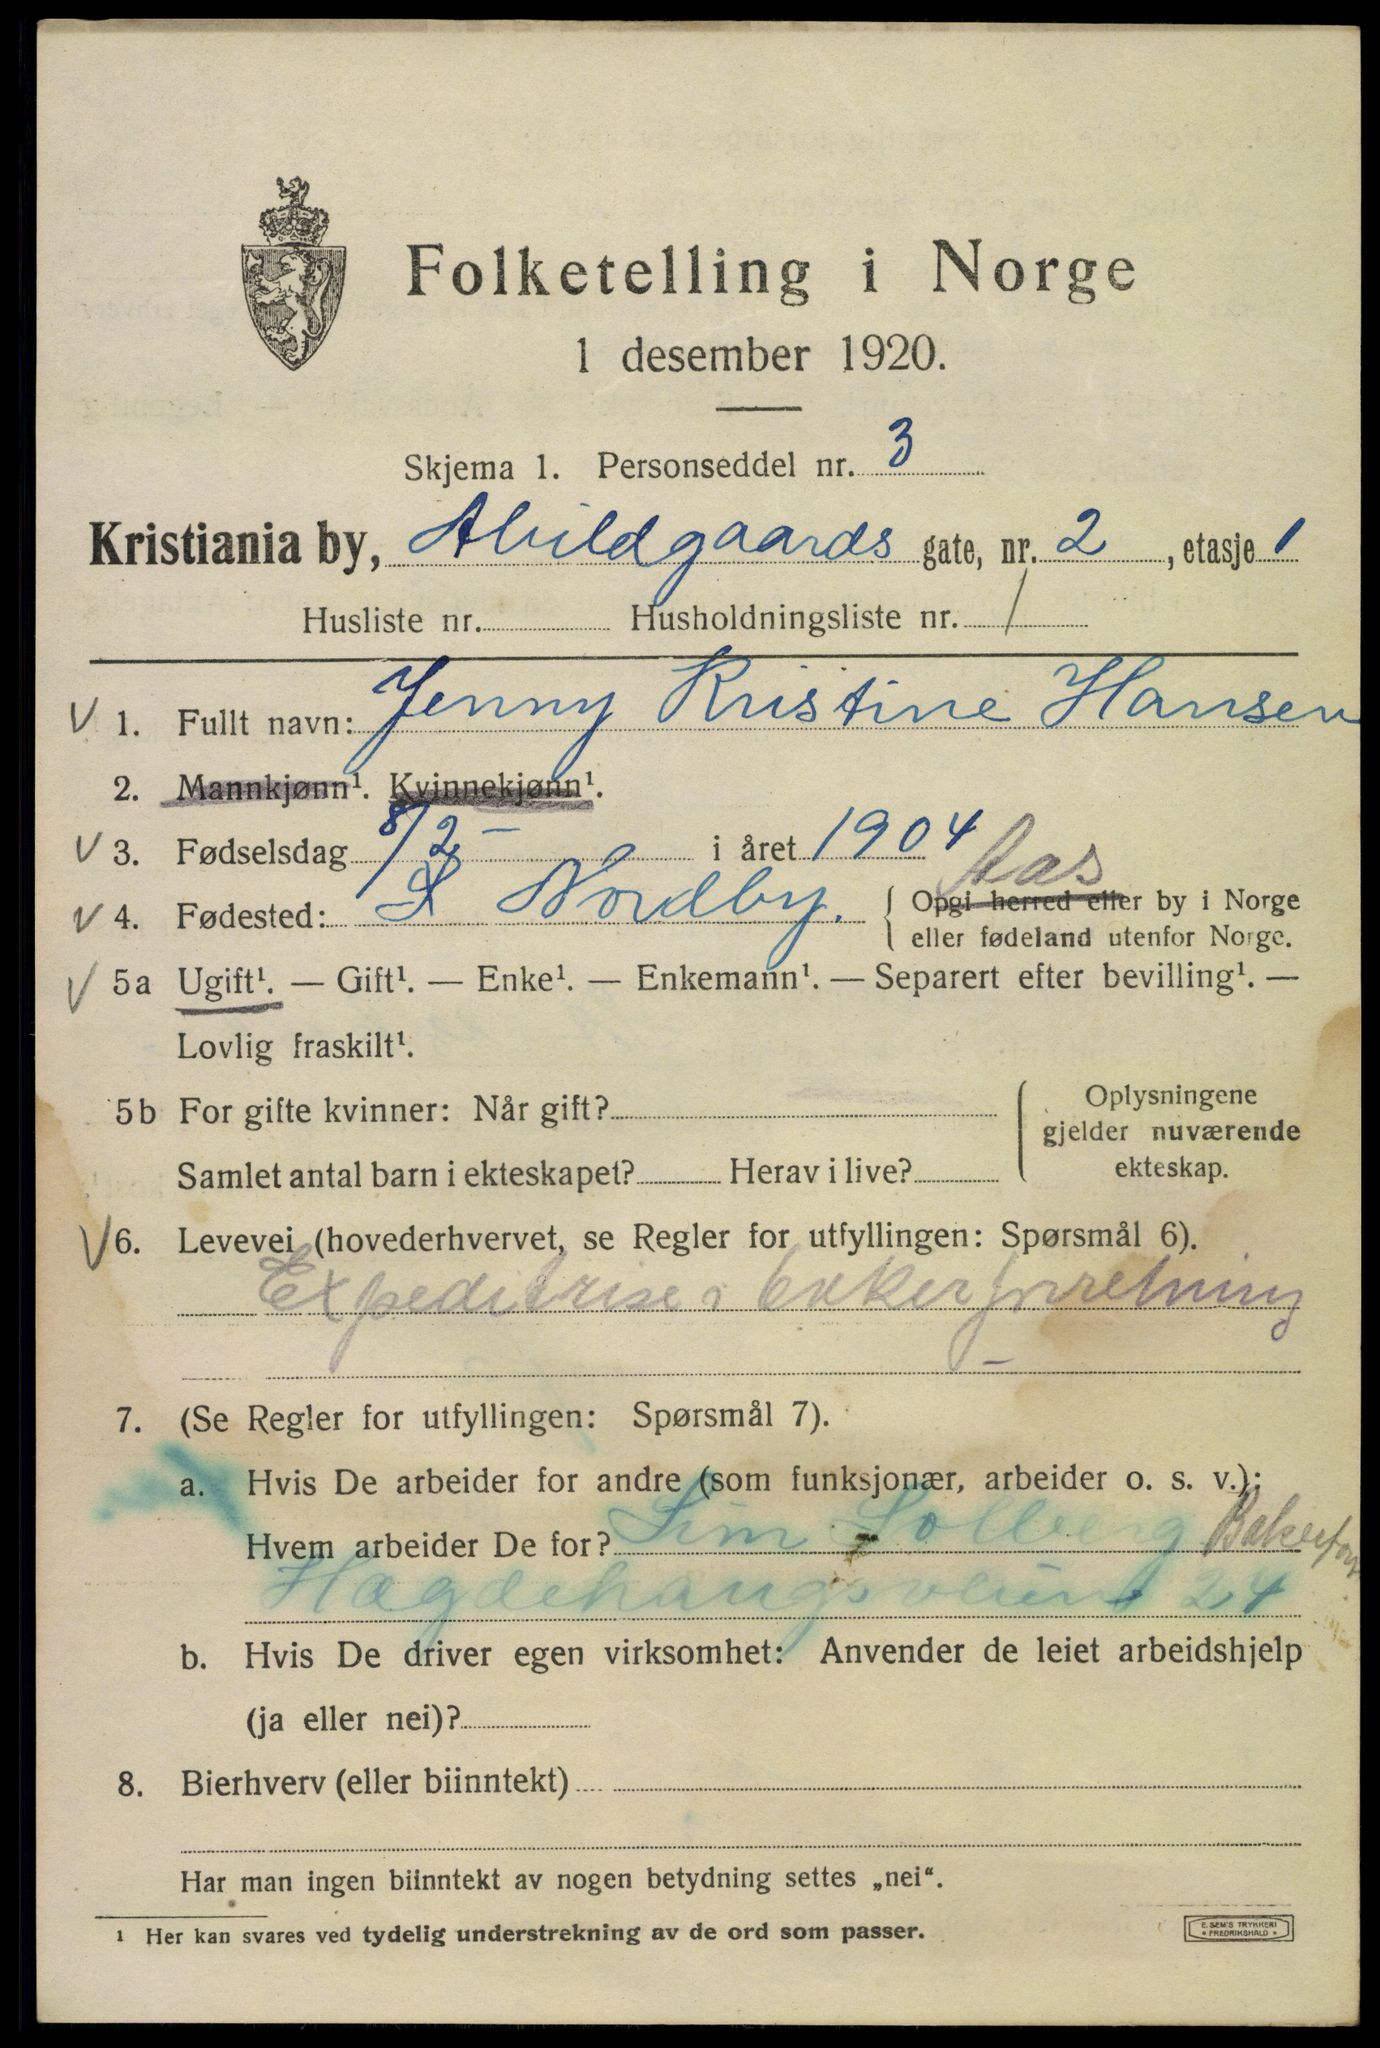 Folketelling i Norge
1 desember 1920.
Skjema 1. Personseddel nr. 3
Kristiania by, Abildgaards gate, nr. 2, etasje 1
Husliste nr. Husholdningsliste nr. 1
V 1. Fullt navn: Jenny Kristine Hansen
2. Mannkjønn¹. Kvinnekjønn¹.
V 3. Fødselsdag 8/2 - i året 1904
Aas
V 4. Fødested: Nordby. Opgi herred eller by i Norge
eller fødeland utenfor Norge.
V 5a Ugift¹. — Gift¹. — Enke¹. — Enkemann¹. — Separert efter bevilling¹. —
Lovlig fraskilt¹.
5b For gifte kvinner: Når gift? Oplysningene
gjelder nuværende
Samlet antal barn i ekteskapet? Herav i live? ekteskap.
V 6. Levevei (hovederhvervet, se Regler for utfyllingen: Spørsmål 6).
Expeditrise i bakerforretning
7. (Se Regler for utfyllingen: Spørsmål 7).
a. Hvis De arbeider for andre (som funksjonær, arbeider o. s. v.):
Hvem arbeider De for? Sim Solberg Bakerforr
Hægdehaugsveien 24
b. Hvis De driver egen virksomhet: Anvender de leiet arbeidshjelp
(ja eller nei)?
8. Bierhverv (eller biinntekt)
Har man ingen biinntekt av nogen betydning settes „nei“.
¹ Her kan svares ved tydelig understrekning av de ord som passer.
E. SEM'S TRYKKERI
* FREDRIKSHALD *